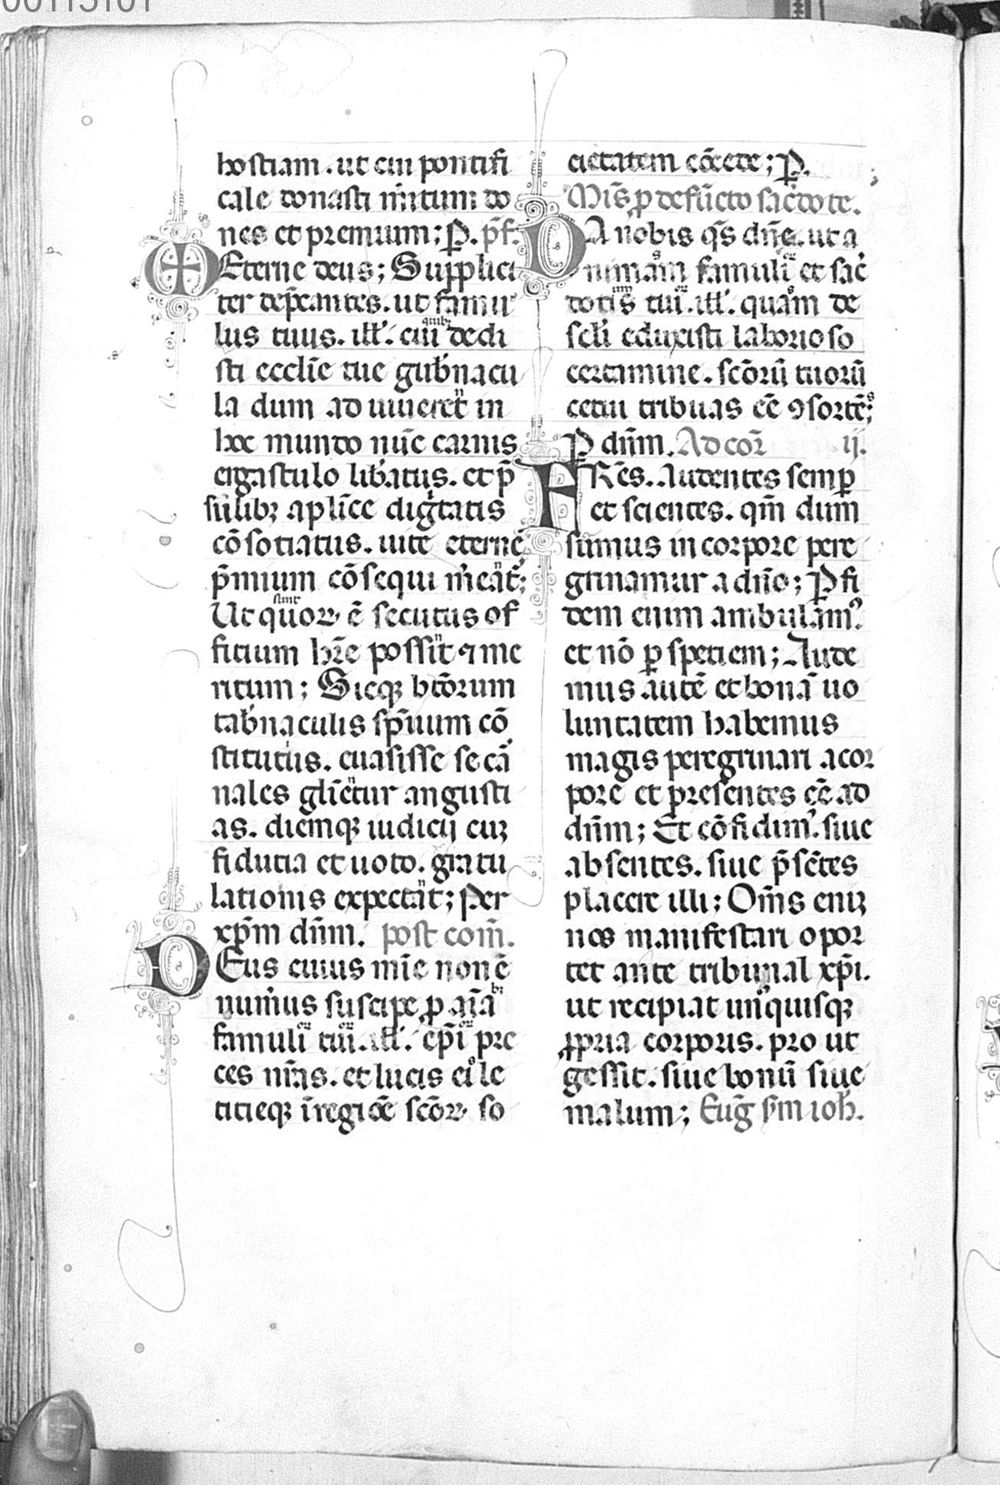 00115101
hostiam. ut cui pontifi
cale donasti m̄itum do
nes et premium; P. p̄f.
Eterne deus; Supplici
ter dep̄cantes. ut famu
lus tuus. ill'. cui dedi
sti eccl̄ie tue gub̄nacu
la dum ad uiueret in
hoc mundo nūc carnis
ergastulo lib̄atus. et p̄
sulibꝫ apl̄ice dignitatis
cōsotiatus. uite eterne
p̄mium cōsequi m̄eat̄;
Ut quoꝝ sunt ē secutus of
ficium hr̄e possit ⁊ me
ritum; Sicqꝫ bt̄orum
tab̄naculis sp̄iuum cō
stitutus. euasisse se cā
nales gl̄iet̄ur angusti
as. diemqꝫ iudicij cuꝫ
fiducia et uoto. gratu
lationis expectat; Per
xp̄m dn̄m. post com̄.
DEus cuius mīe non ē
num̄us suscipe ꝓ aīabꝫ
famuli tui. ill'. ep̄i pre
ces nr̄as. et lucis ei le
titieqꝫ ī regiōe scōꝝ so
cietatem cōcede; P.
Mis̄ ꝓ defūcto sac̄dote.
DA nobis qs̄ dn̄e. ut a
nimam famuli et sac̄
dotis tui. ill'. quam de
scl̄i eduxisti laborioso
certamine. scōrū tuorū
cetui tribuas eē ꝯsortē;
P dn̄m. Ad cor̄ ij.
FRēs. Audentes semꝑ
et scientes. qm̄ dum
sumus in corpore pere
grinamur a dn̄o; P fi
dem enim ambulam̄.
et nō ꝑ speciem; Aude
mus autē et bonā uo
luntatem habemus
magis peregrinari a cor
pore et presentes eē ad
dn̄m; Et cōfidim̄. siue
absentes. siue p̄sētes
placere illi; Om̄s eniꝫ
nos manifestari opor
tet ante tribunal xp̄i.
ut recipiat un̄quisqꝫ
ꝓpria corporis. pro ut
gessit. siue bonū siue
malum; Eug̅ s̄m ioh̄.